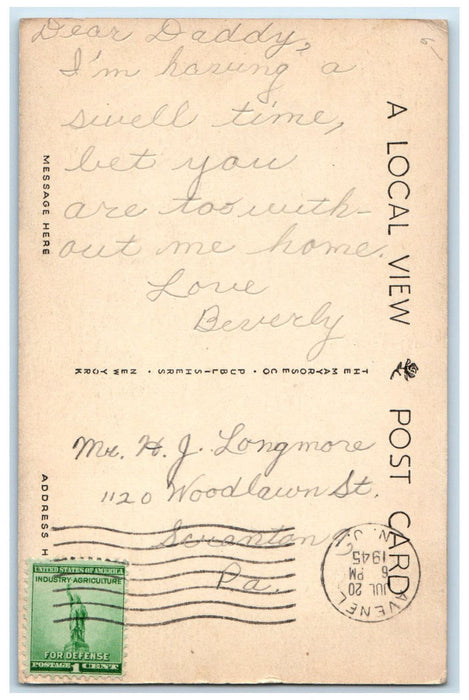 Dear Daddy,
I'm having a
swell time,
bet you
are too with-
out me home.
Love
Beverly
6
MESSAGE HERE
A LOCAL VIEW POST CARD
THE MAYROSE CO. PUBLISHERS · NEW YORK
Mr. H. J. Longmore
1120 Woodlawn St.
Scranton
Pa.
ADDRESS H
AVENEL
N. J.
JUL 20
6 PM
1945
UNITED STATES OF AMERICA
INDUSTRY-AGRICULTURE
FOR DEFENSE
POSTAGE 1 CENT